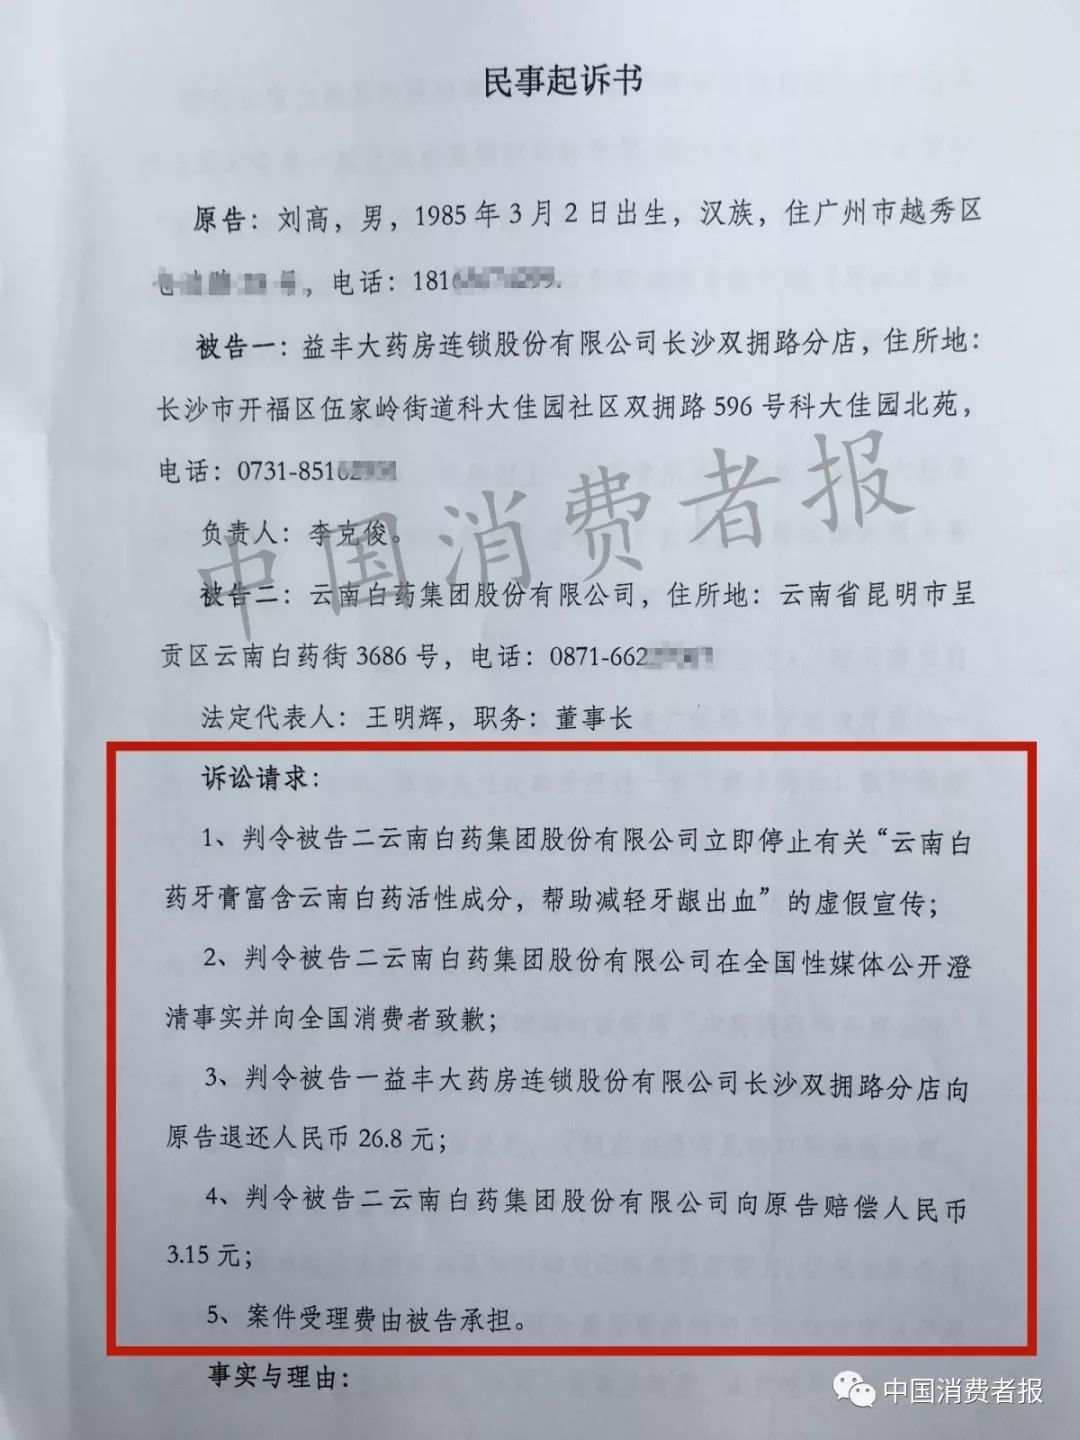 民事起诉书
原告：刘高，男，1985年3月2日出生，汉族，住广州市越秀区
号，电话：181
被告一：益丰大药房连锁股份有限公司长沙双拥路分店，住所地：
长沙市开福区伍家岭街道科大佳园社区双拥路596号科大佳园北苑，
电话：0731-8516
负责人：李克俊。
被告二：云南白药集团股份有限公司，住所地：云南省昆明市呈
贡区云南白药街3686号，电话：0871-662
法定代表人：王明辉，职务：董事长
诉讼请求：
1、判令被告二云南白药集团股份有限公司立即停止有关“云南白
药牙膏富含云南白药活性成分，帮助减轻牙龈出血”的虚假宣传；
2、判令被告二云南白药集团股份有限公司在全国性媒体公开澄
清事实并向全国消费者致歉；
3、判令被告一益丰大药房连锁股份有限公司长沙双拥路分店向
原告退还人民币26.8元；
4、判令被告二云南白药集团股份有限公司向原告赔偿人民币
3.15元；
5、案件受理费由被告承担。
事实与理由：
中国消费者报
中国消费者报